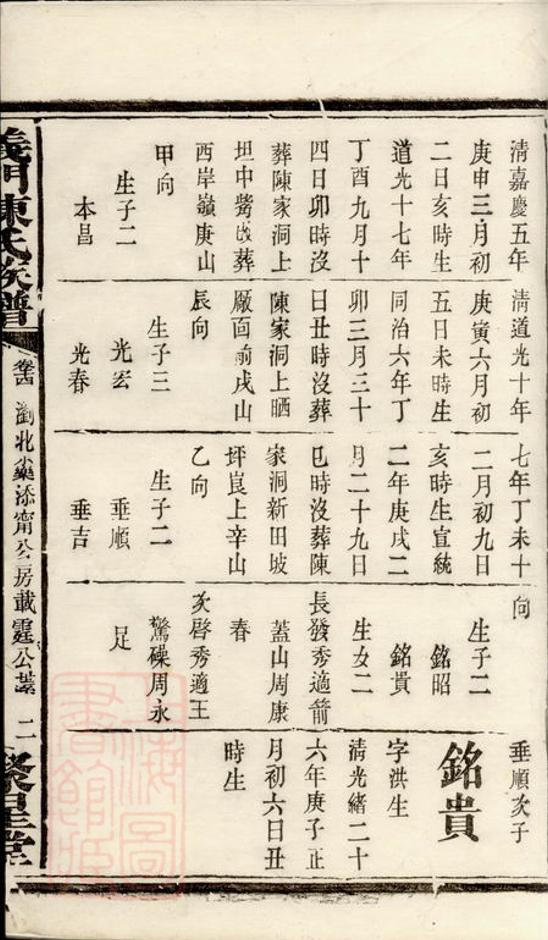 清嘉慶五年
庚申三月初
二日亥時生
道光十七年
丁酉九月十
四日卯時沒
葬陳家洞上
坦中嶅改葬
西岸嶺庚山
甲向
生子二
本昌
清道光十年
庚寅六月初
五日未時生
同治六年丁
卯三月三十
日丑時沒葬
陳家洞上晒
厰面前戌山
辰向
生子三
光宏
光春
七年丁未十
二月初九日
亥時生宣統
二年庚戌二
月二十九日
巳時沒葬陳
家洞新田坡
坪崀上辛山
乙向
生子二
垂順
垂吉
向
生子二
銘昭
銘貴
生女二
長發秀適箭
蓋山周康
春
次啓秀適王
驚磜周永
足
垂順次子
銘貴
字洪生
清光緒二十
六年庚子正
月初六日丑
時生
義門陳氏族譜
瀏北
添甯公房載霆公
二
聚星堂